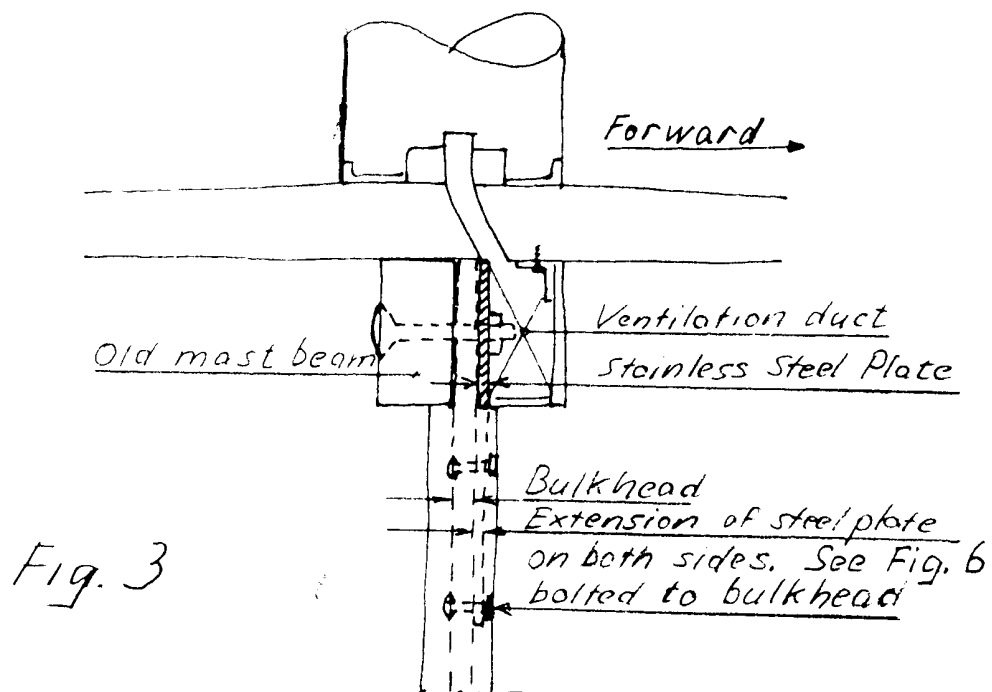 Forward
Ventilation duct
Old mast beam
Stainless Steel Plate
Bulkhead
Extension of steel plate
on both sides. See Fig. 6
bolted to bulkhead
Fig. 3